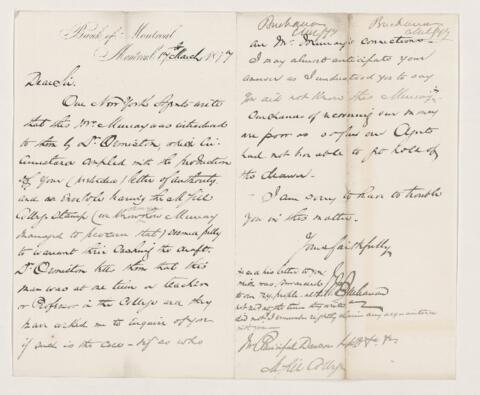 Bank of Montreal
Montreal 17th March 1877
Dear Sir.
Our New York Agents write
that this Mr Murray was introduced
to them by Dr Ormiston, which cir-
cumstance coupled with the production
of your letter of authority
and an envelope having the McGill
College Stamp (we know how Murray
managed to procure that)
to warrant their Cashing the draft.
Dr Ormiston tells them that this
man was at one time a teacher
or Professor in the College and they
have asked me to inquire of you
if such is the case - if so who
Buchanan
Buchanan
are Mr Murray's connections -
I may almost anticipate your
answer as I understood you to say
you did not know this Murray.
Our chances of recovering our money
are poor as so far our Agents
had not been able to get hold of
the drawer.
- I am sorry to have to trouble
you in this matter.
Yours faithfully
Buchanan
his letter to you
which was forwarded
to our N.Y. people
at the time
did not I remember rightly claim any acquaintance
Mr Principal Dawson
McGill College